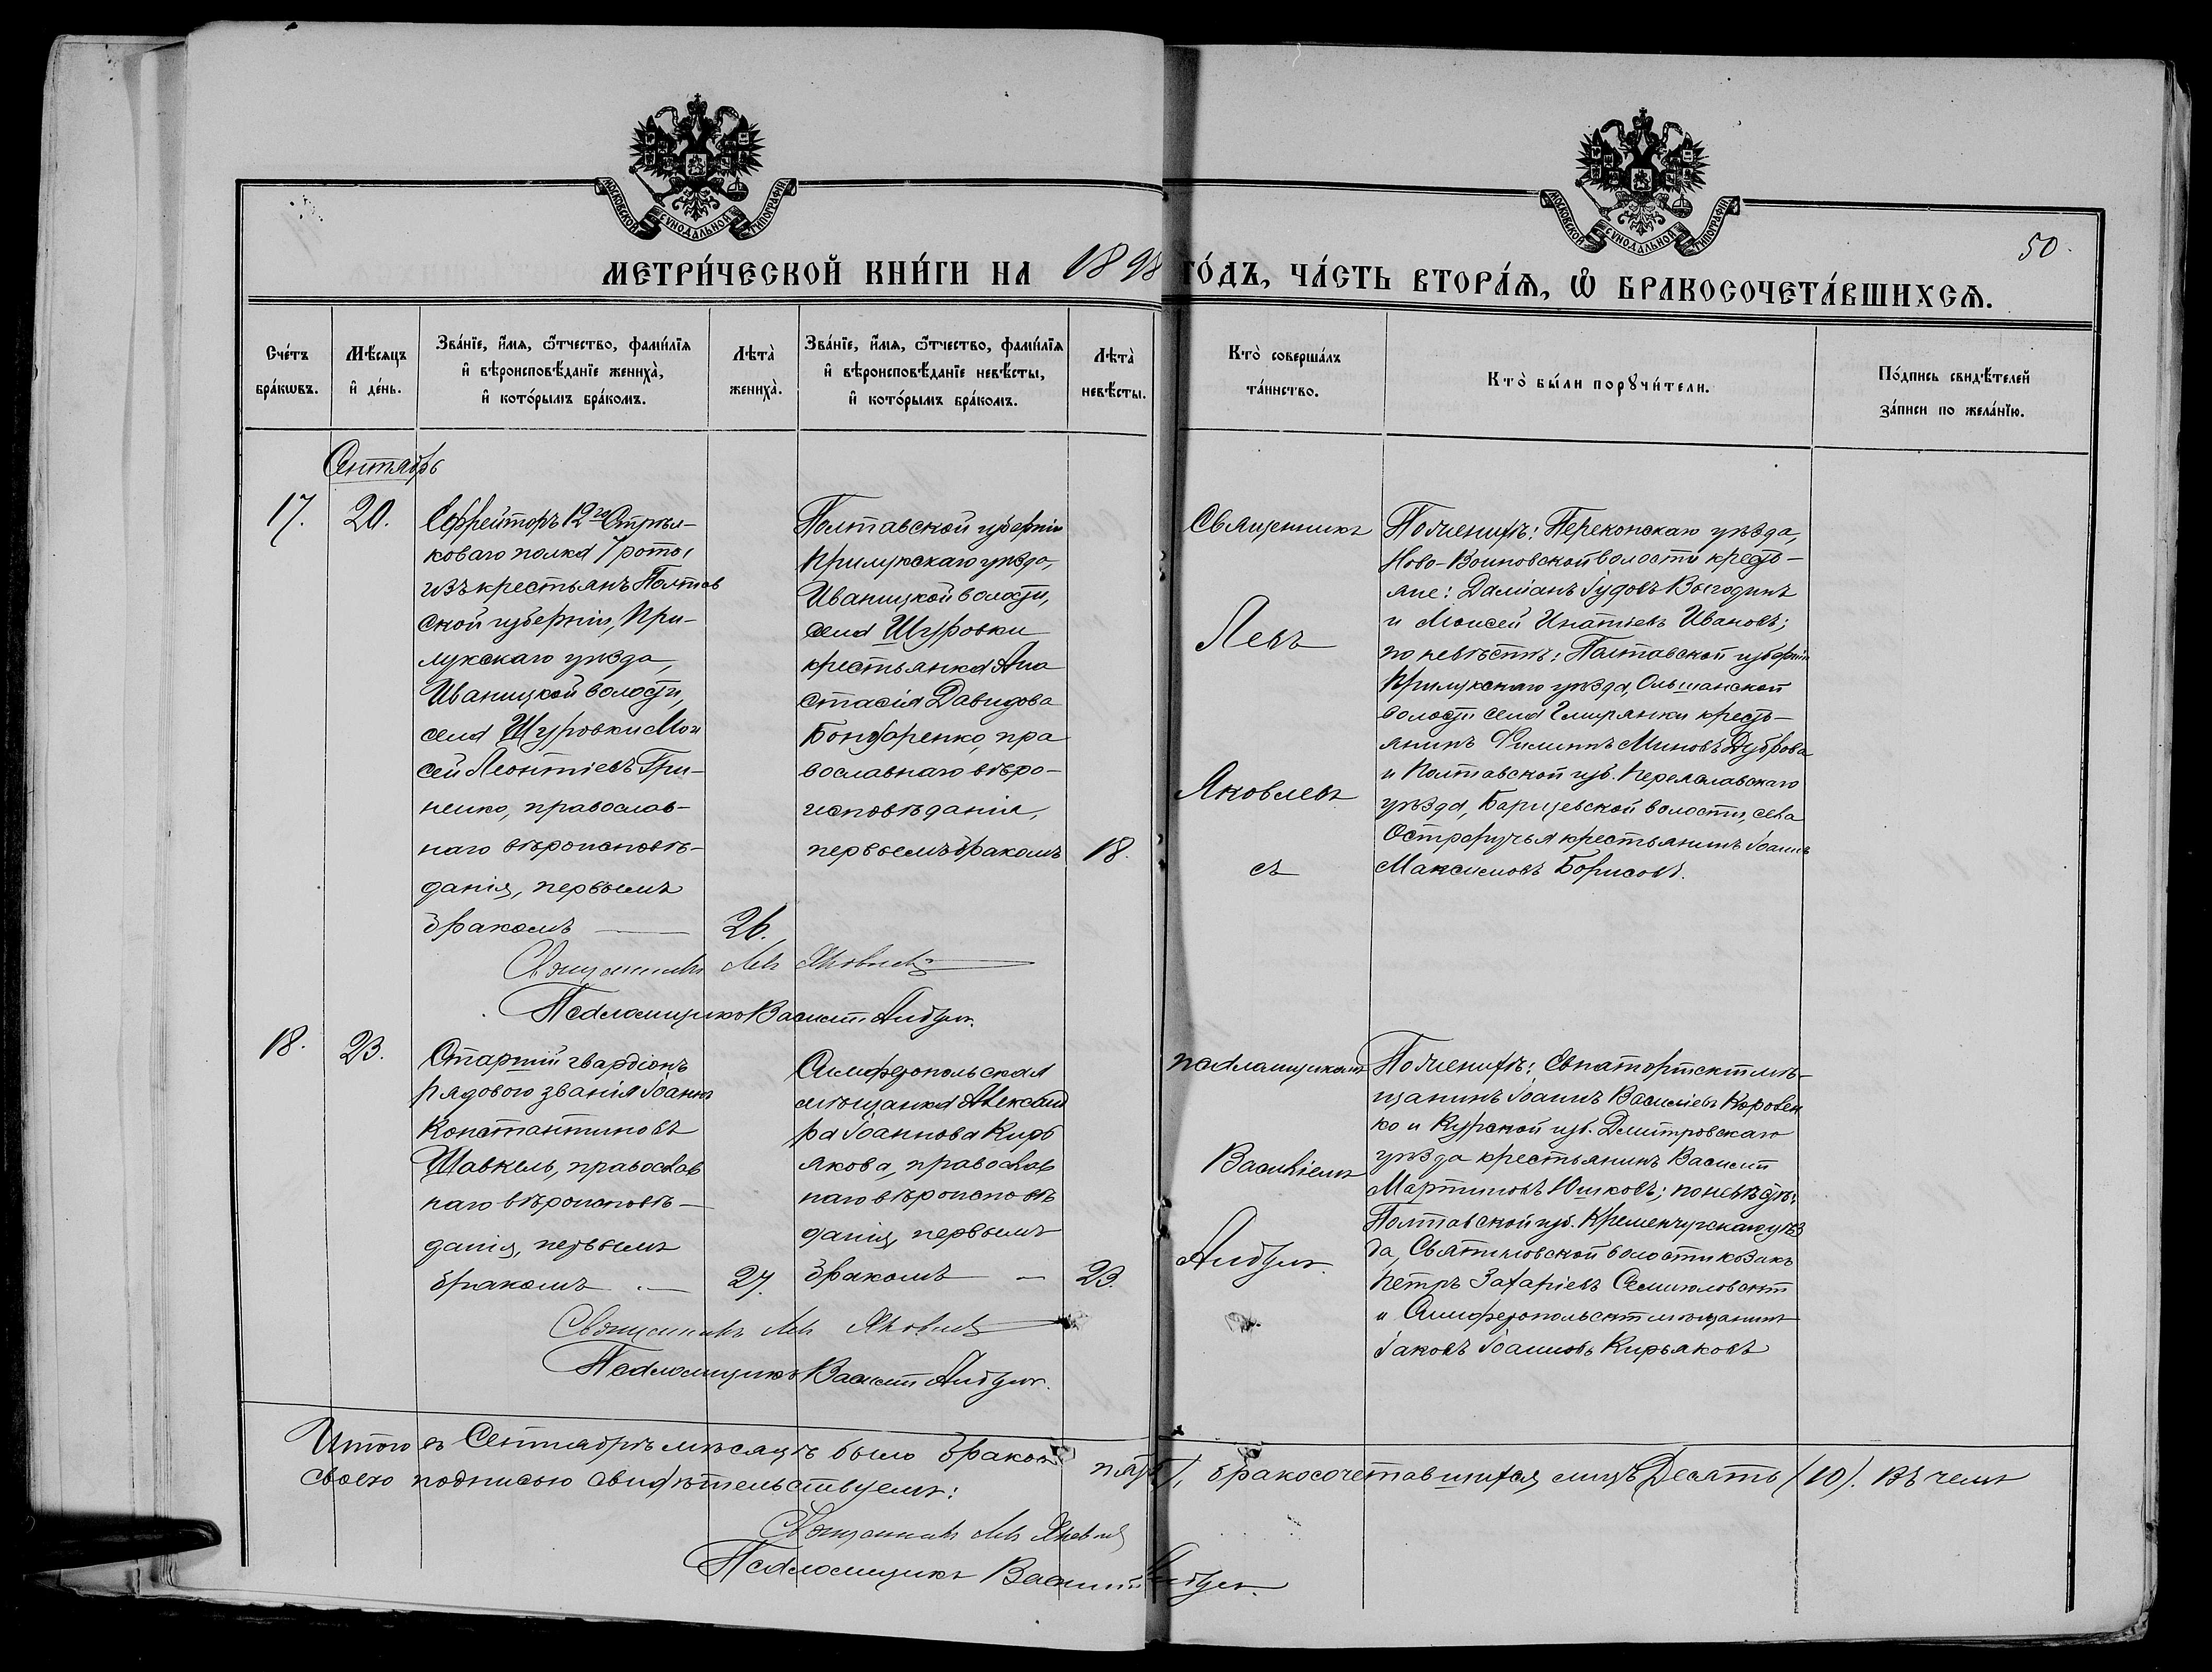 МОСКОВСКОЙ СѴНОДАЛЬНОЙ ТИПОГРАФІИ
МОСКОВСКОЙ СѴНОДАЛЬНОЙ ТИПОГРАФІИ
50.
МЕТРИ́ЧЕСКОЙ КНИ́ГИ НА 1898 ГО́ДЪ, ЧА́СТЬ ВТОРА́Ѧ, Ѡ҆ БРАКОСОЧЕТА́ВШИХСѦ.
Сче́тъ бра́кωвъ.
Мѣ́сяцъ и҆ де́нь.
Зва́нїе, и҆́мѧ, ѻ҆́тчество, фами́лїѧ и҆ вѣроисповѣ́данїе жениха̀, и҆ кото́рымъ бра́комъ.
Лѣта̀ жениха̀.
Зва́нїе, и҆́мѧ, ѻ҆́тчество, фами́лїѧ и҆ вѣроисповѣ́данїе невѣ́сты, и҆ кото́рымъ бра́комъ.
Лѣта̀ невѣ́сты.
Кто̀ соверша́лъ та́инство.
Кто̀ бы́ли порꙋчи́тели.
По́дпись свидѣ́телей за́писи по жела́нїю.
Сентябрь
17.
20.
Ефрейторъ 12го Стрѣл-
коваго полка 7 роты
изъ крестьянъ Полтав
ской губерніи, При-
лукскаго уѣзда,
Иваницкой волости,
села Щуровки Мои
сей Леонтіевъ Гри-
ненко, православ-
наго вѣроисповѣ-
данія, первымъ
бракомъ
26.
Полтавской губерніи
Прилукскаго уѣзда,
Иваницкой волости,
села Щуровки
крестьянка Ана
стасія Давидова
Бондаренко, пра
вославнаго вѣро-
исповѣданія,
первымъ бракомъ
18.
Священникъ
Левъ
Яковлевъ
съ
По женихѣ: Перекопскаго уѣзда,
Ново-Воиновской волости кресть-
яне: Даміанъ Іудовъ Выгодинъ
и Моисей Игнатіевъ Ивановъ;
по невѣстѣ: Полтавской губерніи
Прилукскаго уѣзда, Ольшанской
волости села Гмирянки кресть-
янинъ Филиппъ Миновъ Дуброва
и Полтавской губ. Переяславскаго
уѣзда, Барищевской волости, села
крестьянинъ Іоаннъ
Максимовъ Борисовъ.
Священникъ Левъ Яковлевъ
Псаломщикъ Василій
18.
23.
Старшій
рядового званія Іоаннъ
Константиновъ
Шавкель, православ
наго вѣроисповѣ-
данія, первымъ
бракомъ
27.
Симферопольская
мѣщанка Александ
ра Іоаннова Кирь
якова, православ
наго вѣроисповѣ
данія, первымъ
бракомъ
23.
псаломщикомъ
Василіемъ
По женихѣ: Евпаторійскій мѣ-
щанинъ Іоаннъ Василіевъ Коровен
ко и Курской губ. Дмитровскаго
уѣзда крестьянинъ Василій
Мартиновъ Юшковъ; по невѣстѣ:
Полтавской губ. Кременчугскаго уѣз
да, волости козакъ
Петръ Захаріевъ
и Симферопольскій мѣщанинъ
Іаковъ Іоанновъ Кирьяковъ
Священникъ Левъ Яковлевъ
Псаломщикъ Василій
Итого въ Сентябрѣ мѣсяцѣ было браковъ пять, бракосочетавшихся лицъ Десять (10). Въ чемъ
своею подписью свидѣтельствуемъ:
Священникъ Левъ Яковлевъ
Псаломщикъ Василій